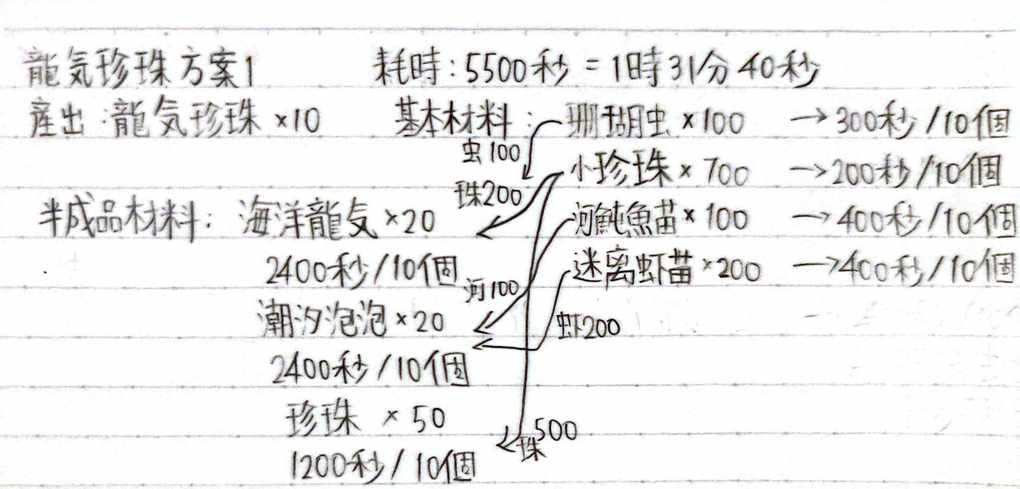 龍気珍珠方案1 耗時:5500秒=1時31分40秒
産出:龍気珍珠×10 基本材料:珊瑚虫×100 →300秒/10個
虫100
小珍珠×700 →200秒/10個
珠200
半成品材料:海洋龍気×20 河魨魚苗×100 →400秒/10個
2400秒/10個 河100 迷离虾苗×200 →400秒/10個
潮汐泡泡×20 虾200
2400秒/10個
珍珠×50 珠500
1200秒/10個